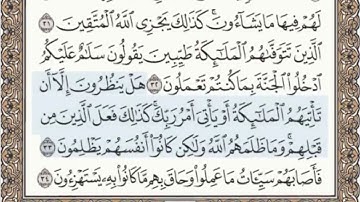 لَهُمْ فِيهَا مَا يَشَآءُونَ ۚ كَذَٰلِكَ يَجْزِى ٱللَّهُ ٱلْمُتَّقِينَ ٣١
ٱلَّذِينَ تَتَوَفَّىٰهُمُ ٱلْمَلَـٰٓئِكَةُ طَيِّبِينَ ۙ يَقُولُونَ سَلَـٰمٌ عَلَيْكُمُ
ٱدْخُلُوا۟ ٱلْجَنَّةَ بِمَا كُنتُمْ تَعْمَلُونَ ٣٢ هَلْ يَنظُرُونَ إِلَّآ أَن
تَأْتِيَهُمُ ٱلْمَلَـٰٓئِكَةُ أَوْ يَأْتِىَ أَمْرُ رَبِّكَ ۚ كَذَٰلِكَ فَعَلَ ٱلَّذِينَ مِن
قَبْلِهِمْ ۚ وَمَا ظَلَمَهُمُ ٱللَّهُ وَلَـٰكِن كَانُوٓا۟ أَنفُسَهُمْ يَظْلِمُونَ ٣٣
فَأَصَابَهُمْ سَيِّـَٔاتُ مَا عَمِلُوا۟ وَحَاقَ بِهِم مَّا كَانُوا۟ بِهِۦ يَسْتَهْزِءُونَ ٣٤